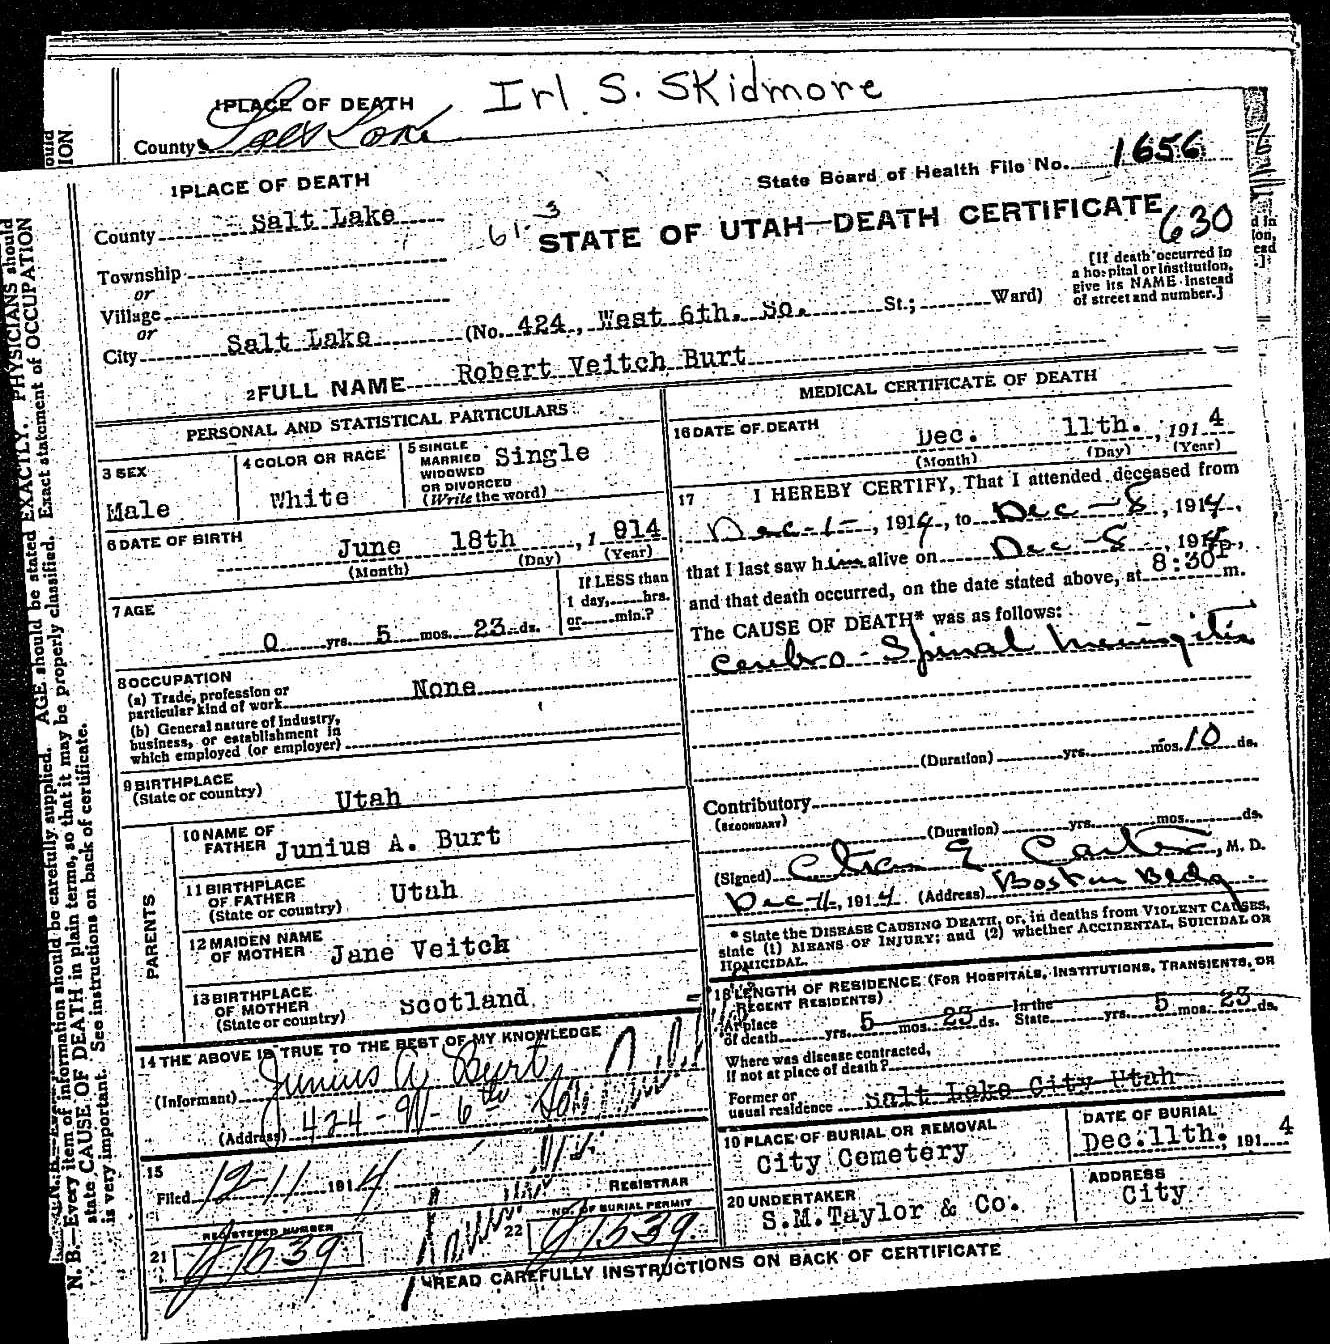 Irl S. Skidmore
1 PLACE OF DEATH
County
1 PLACE OF DEATH
State Board of Health File No. 1656
County Salt Lake
61-3
STATE OF UTAH—DEATH CERTIFICATE
630
Township
or
Village
or
City Salt Lake (No. 424, West 6th. So. St.; Ward)
[If death occurred in
a hospital or institution,
give its NAME instead
of street and number.]
2 FULL NAME Robert Veitch Burt
PERSONAL AND STATISTICAL PARTICULARS
3 SEX
Male
4 COLOR OR RACE
White
5 SINGLE
MARRIED
WIDOWED
OR DIVORCED
(Write the word)
Single
6 DATE OF BIRTH
June 18th, 1 914
(Month) (Day) (Year)
7 AGE
0 yrs. 5 mos. 23 ds.
If LESS than
1 day, hrs.
or min.?
8 OCCUPATION
(a) Trade, profession or
particular kind of work None
(b) General nature of Industry,
business, or establishment in
which employed (or employer)
9 BIRTHPLACE
(State or country) Utah
PARENTS
10 NAME OF
FATHER Junius A. Burt
11 BIRTHPLACE
OF FATHER
(State or country) Utah
12 MAIDEN NAME
OF MOTHER Jane Veitch
13 BIRTHPLACE
OF MOTHER
(State or country) Scotland
14 THE ABOVE IS TRUE TO THE BEST OF MY KNOWLEDGE
(Informant) Junius A Burt
(Address) 424-W-6th So
15
Filed 12-11 1914
REGISTRAR
21 REGISTERED NUMBER
J1539
22 NO. OF BURIAL PERMIT
J1539
MEDICAL CERTIFICATE OF DEATH
16 DATE OF DEATH
Dec. 11th., 1914
(Month) (Day) (Year)
17 I HEREBY CERTIFY, That I attended deceased from
Dec-1-, 1914, to Dec-8, 1914,
that I last saw him alive on Dec-8, 1914,
and that death occurred, on the date stated above, at 8:30P m.
The CAUSE OF DEATH* was as follows:
Cerebro-Spinal Meningitis
(Duration) yrs. mos. 10 ds.
Contributory
(SECONDARY)
(Duration) yrs. mos. ds.
(Signed) E Carter, M. D.
Dec-11-, 1914 (Address) Boston Bldg.
* State the DISEASE CAUSING DEATH, or, in deaths from VIOLENT CAUSES,
state (1) MEANS OF INJURY; and (2) whether ACCIDENTAL, SUICIDAL OR
HOMICIDAL.
18 LENGTH OF RESIDENCE (FOR HOSPITALS, INSTITUTIONS, TRANSIENTS, OR
RECENT RESIDENTS)
At place
of death yrs. 5 mos. 23 ds. In the
State yrs. 5 mos. 23 ds.
Where was disease contracted,
If not at place of death?
Former or
usual residence Salt Lake City Utah
19 PLACE OF BURIAL OR REMOVAL
City Cemetery
DATE OF BURIAL
Dec.11th. 1914
20 UNDERTAKER
S.M.Taylor & Co.
ADDRESS
City
READ CAREFULLY INSTRUCTIONS ON BACK OF CERTIFICATE
N. B.—Every item of information should be carefully supplied. AGE should be stated EXACTLY. PHYSICIANS should
state CAUSE OF DEATH in plain terms, so that it may be properly classified. Exact statement of OCCUPATION
is very important. See instructions on back of certificate.